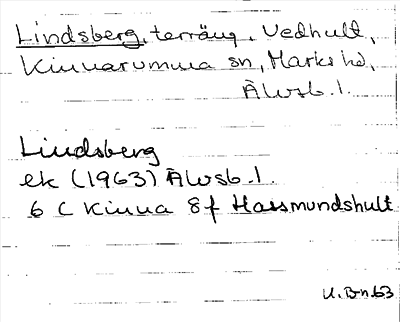 Lindsberg, terräng, Vedhult,
Kinnarumma sn, Marks hd,
Älvsb. l.
Lindsberg
ek (1963) Älvsb. l.
6 C Kinna 8f Hassmundshult
U. Bn. 63